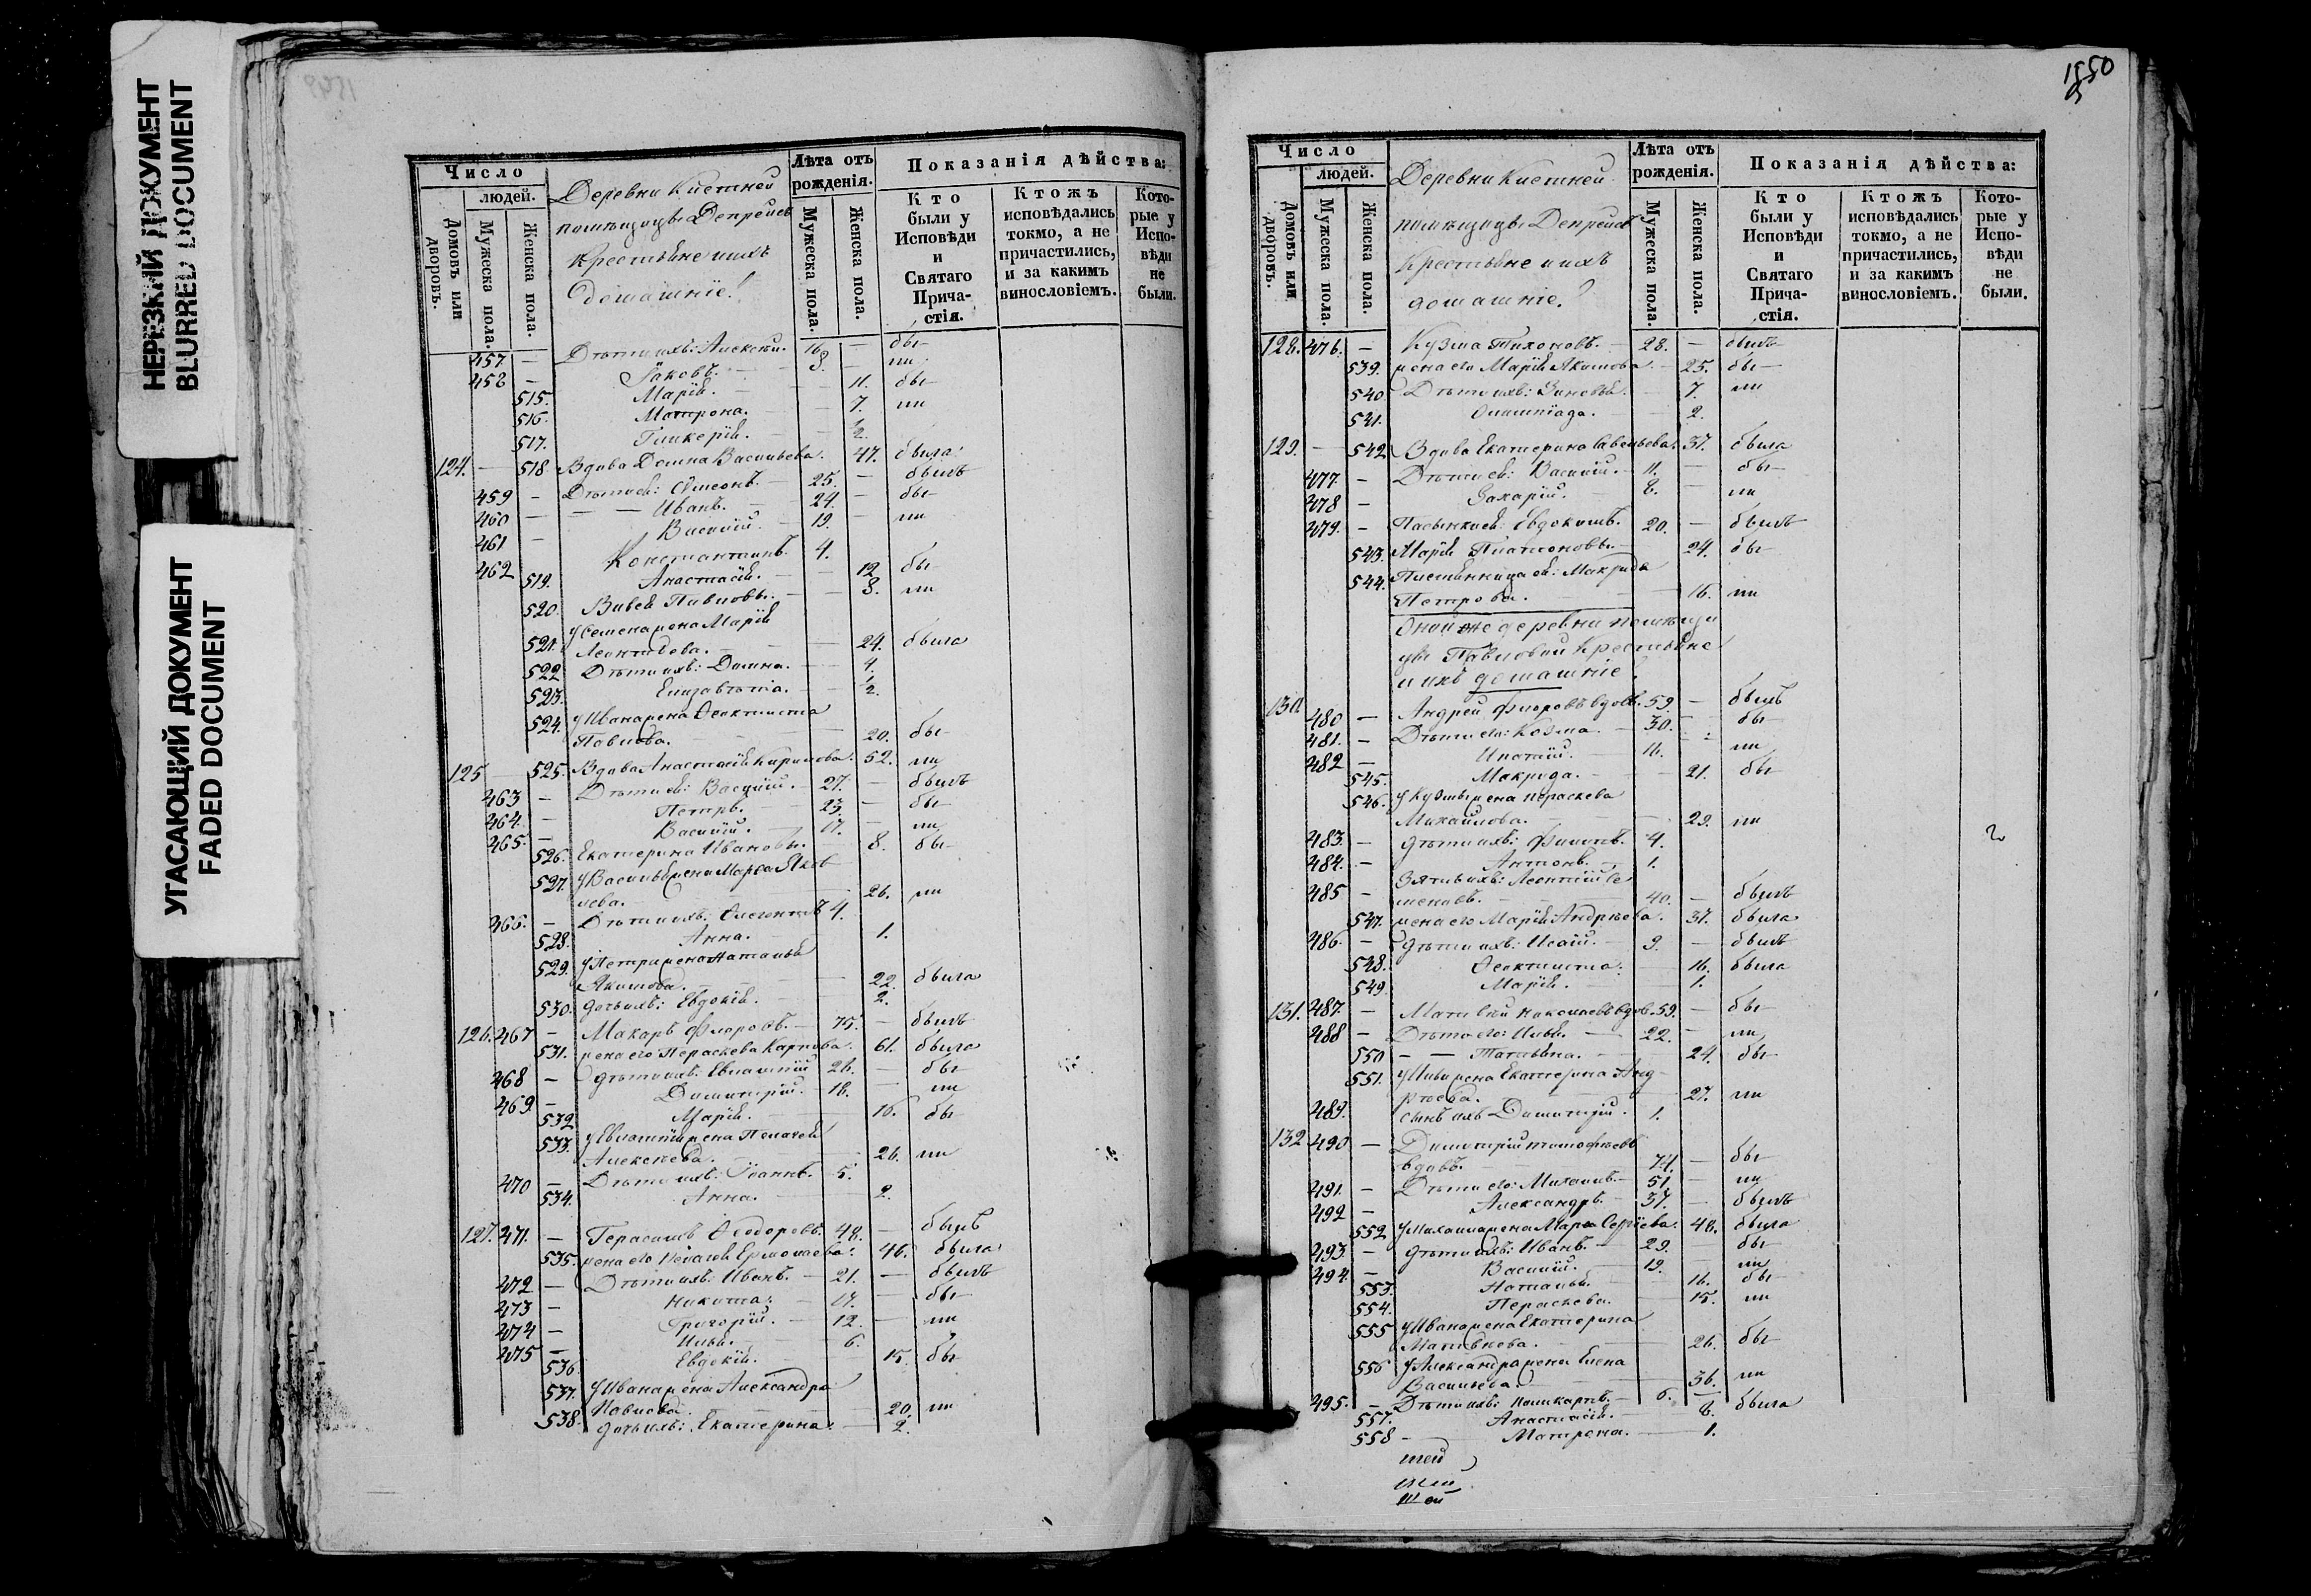 НЕРЕЗКИЙ ДОКУМЕНТ
BLURRED DOCUMENT
УГАСАЮЩИЙ ДОКУМЕНТ
FADED DOCUMENT
Число
людей.
Домовъ или дворовъ.
Мужеска пола.
Женска пола.
Деревни Кистней
помѣщицы Депрейсъ
Крестьяне и ихъ
домашніе:
Лѣта отъ рожденія.
Мужеска пола.
Женска пола.
Показанія дѣйства:
Кто были у Исповѣди и Святаго Прича-стія.
Ктожъ исповѣдались токмо, а не причастились, и за какимъ винословіемъ.
Кото-рые у Испо-вѣди не были.
457. — Дѣти ихъ: Алексѣй. 16. — бы—
458 — Іаковъ. 8. — ли
515. Марія. — 11. бы—
516. Матрона. — 7. ли
517. Гликерія. — 1/2.
124. — 518. Вдова Домна Васильева. 47. была
459 — Дѣти ея: Симеонъ. — 25. — былъ
460 — Иванъ. — 24. — бы—
461 — Василій. — 19. — ли
462 Константинъ. 4.
519. Анастасія. — 12 бы—
520. Павловы. — 8. ли
521. У Семена жена Марія
Леонтьева. — 24. была
522 Дѣти ихъ: Домна. — 4.
523. Елизавета. — 1/2.
524. У Ивана жена Ѳеоктиста
Павлова. — 20. бы—
125 — 525. Вдова Анастасія Кирилова. 52. ли
463 — Дѣти ея: Василій. — 27. — былъ
464. — Петръ. — 23. — бы—
465. — Василій. — 17. — ли
526. Екатерина Иванова. — 8. бы—
527. У Василья жена Марѳа Яков
лева. — 26. ли
466. — Дѣти ихъ: 4.
528. Анна. — 1.
529. У Петра жена Наталья
Якимова. — 22. была
530. Дочь ихъ: Евдокія. — 2.
126. 467 — Макаръ Флоровъ. — 75. — былъ
531. жена его Пераскева Карпова. 61. была
468 — Дѣти ихъ: Евлампій 26. — бы—
469. — Димитрій. — 18. — ли
532 Марія. — 16. бы—
533. У Евлампія жена Пелагея
Алексѣева. — 26. ли
470 — Дѣти ихъ: Іоаннъ. 5.
534. Анна. — 2.
127. 471. — Герасимъ Ѳеодоровъ. 48. — былъ
535. жена его Пелагея Ермолаева. 46. была
472 — Дѣти ихъ: Иванъ. — 21. — былъ
473 — Никита. — 17. — бы—
474 — Григорій. — 12. — ли
475 — Илья. — 6.
536 Евдокія. — 15. бы—
537. У Ивана жена Александра
Павлова. — 20. ли
538. Дочь ихъ: Екатерина. — 2.
1550
Число
людей.
Домовъ или дворовъ.
Мужеска пола.
Женска пола.
Деревни Кистней
помѣщицы Депрейсъ
Крестьяне и ихъ
домашніе:
Лѣта отъ рожденія.
Мужеска пола.
Женска пола.
Показанія дѣйства:
Кто были у Исповѣди и Святаго Прича-стія.
Ктожъ исповѣдались токмо, а не причастились, и за какимъ винословіемъ.
Кото-рые у Испо-вѣди не были.
128. 476. — Кузма Тихоновъ. — 28. — былъ
539. жена его Марія Якимова. — 25. бы—
540. Дѣти ихъ: Зиновья. — 7. ли
541. Олимпіада. — 2.
129. — 542 Вдова Екатерина Савельева. 37. была
477. — Дѣти ея: Василій. — 11. — бы—
478 — Захарій. 8. — ли
479. — Пасынки ея: Евдокимъ. 20. — былъ
543. Марія Платоновы. — 24. бы—
544. Племянница ея: Макрида
Петрова. — 16. ли
Оной же деревни помѣщи
цы Павловой Крестьяне
и ихъ домашніе:
130. 480 — Андрей Флоровъ вдов. 59. — былъ
481. — Дѣти его: Козма. — 30. — бы—
482 — Ипатій. — 16. — ли
545. Макрида. — 21. бы—
546. У Кузьмы жена Пераскева
Михайлова. — 29. ли
483. — Дѣти ихъ: Филипъ. 4.
484. — Антонъ. — 1.
485 — Зять ихъ: Леонтій Се
меновъ. — 40. — былъ
547. жена его Марія Андреева. 37. была
486. — Дѣти ихъ: Исаій. — 9. — былъ
548. Ѳеоктиста. — 16. была
549. Марія. — 1.
131. 487. — Матвѣй Николаевъ вдов. 59. — бы—
488 — Дѣти его: Илья. — 22. — ли
550 — Татьяна. — 24. бы—
551. У Ильи жена Екатерина Анд
рѣева. — 27. ли
489. Сынъ ихъ Димитрій. 1.
132 490. — Димитрій Тимофѣевъ
вдовъ. — 74. — бы—
491. — Дѣти его: Михаилъ. — 51 — ли
492 — Александръ. — 37. — былъ
552 У Михаила жена Марѳа Сергіева. 48. была
493 — Дѣти ихъ: Иванъ. — 29. — бы—
494. — Василій. — 19. — ли
553. Наталья. — 16. бы—
554. Пераскева. — 15. ли
555 У Ивана жена Екатерина
Матвѣева. — 26. бы—
556 У Александра жена Елена
Васильева. — 36. ли
495. — Дѣти ихъ: Поликарпъ. — 6. —
557. Анастасія. — 8. была
558 — Матрона. — 1.